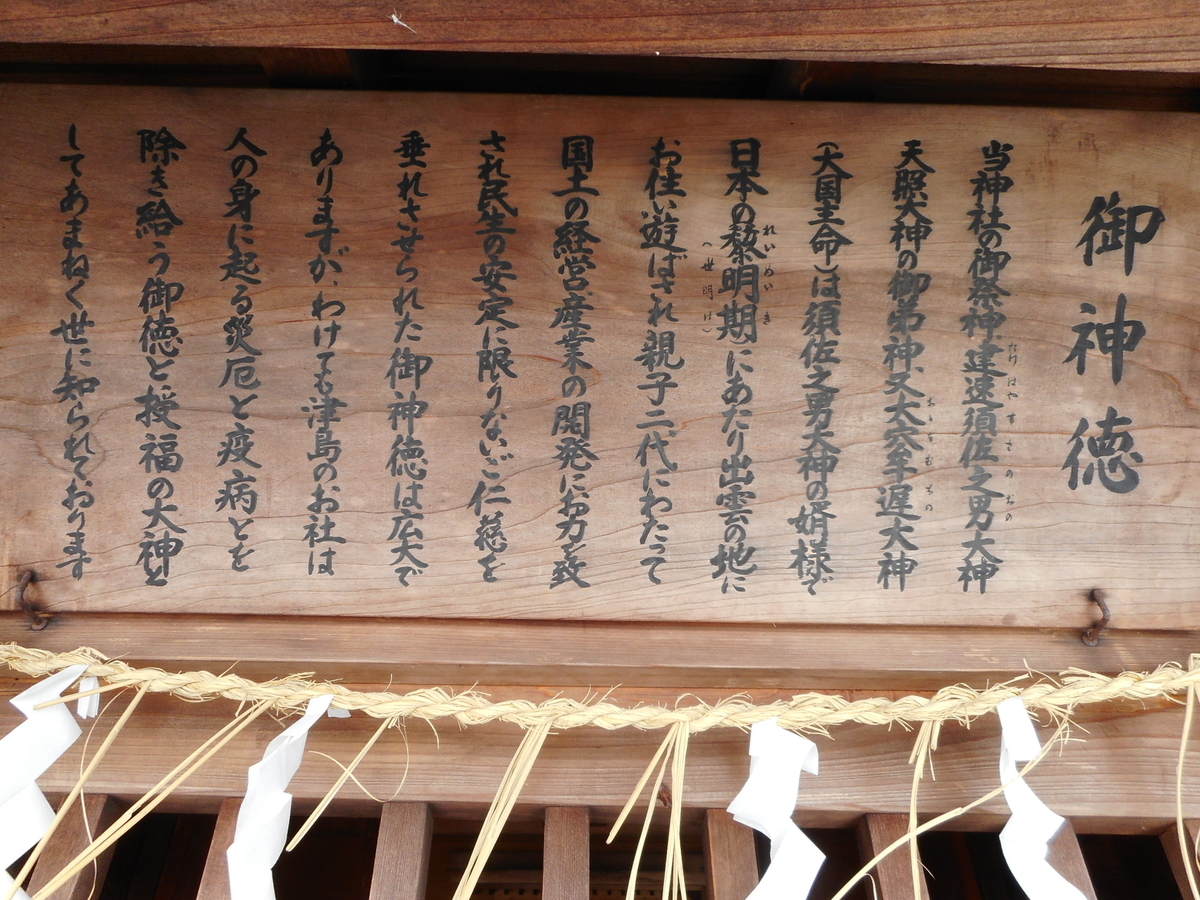 御神徳
当神社の御祭神、建速須佐之男大神
たけはやすさのおの
天照大神の御弟神、又大穴牟遅大神
おおなむちの
(大国主命)は須佐之男大神の婿様で
日本の黎明期にあたり出雲の地に
れいめいき
(世明け)
お住い遊ばされ親子二代にわたって
国土の経営、産業の開発にお力を致
され民生の安定に限りないご仁慈を
垂れさせられた御神徳は広大で
ありますが、わけても津島のお社は
人の身に起る災厄と疫病とを
除き給う御徳と、授福の大神と
してあまねく世に知られております